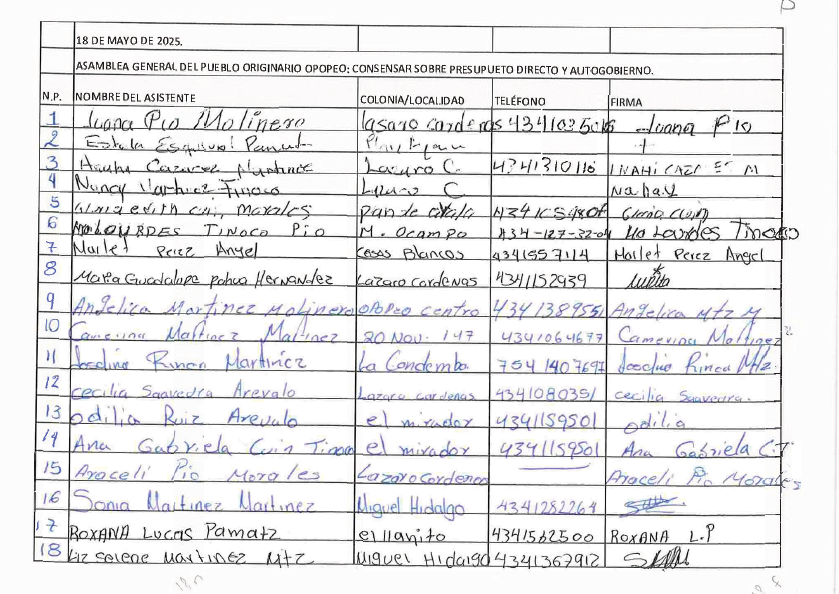 18 DE MAYO DE 2025.
ASAMBLEA GENERAL DEL PUEBLO ORIGINARIO OPOPEO; CONSENSAR SOBRE PRESUPUETO DIRECTO Y AUTOGOBIERNO.
N.P. NOMBRE DEL ASISTENTE COLONIA/LOCALIDAD TELÉFONO FIRMA
1 Juana Pio Molinero lasaro carderas Juana Pio
2 Estela Esquivel
3 Lazaro C. 4341310116
4 Nancy Martinez Tinoco Lazaro C Nancy
5 edith cuin Morales pan de
6 Ma LOURDES TINOCO Pio M. Ocampo 434-127-32-04 Ma Lourdes Tinoco
7 Mallet Perez Angel Casas Blancas 4341557114 Mallet Perez Angel
8 Maria Guadalupe pahua Hernandez Lazaro cardenas 4341152939
9 Angelica Martinez molinero opopeo centro 4341389551 Angelica Mtz M
10 Camerina Martinez Martinez 20 Nov. 147 4341064677 Camerina Martinez
11 Josefina Rincon Martinez La Condemba 754 1407697 Josefina Rincon Mtz.
12 cecilia Saavedra Arevalo Lazaro cardenas 4341080351 cecilia Saavedra.
13 odilia Ruiz Arevalo el mirador 4341159501 odilia
14 Ana Gabriela Cuin Tinoco el mirador 4341159501 Ana Gabriela C.T
15 Araceli Pio Morales Lazaro Cordenca Araceli Pio Morales
16 Sonia Martinez Martinez Miguel Hidalgo 4341282264
17 ROXANA LUCAS Pamatz el llanito 4341562500 ROXANA L.P
18 Liz Selene Martinez Mtz Miguel Hidalgo 4341367912